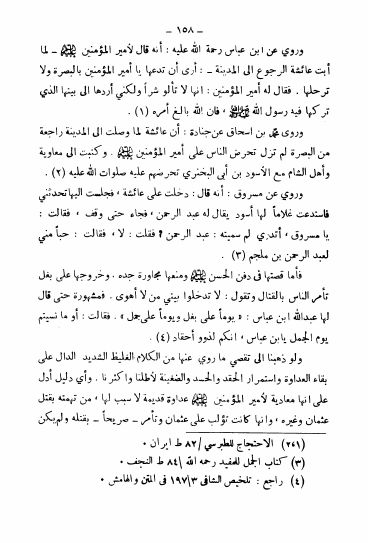 – ١٥٨ –
وروي عن ابن عباس رحمة الله عليه : أنه قال لأمير المؤمنين ﷺ – لما
أبت عائشة الرجوع الى المدينة – : أرى أن تدعها يا أمير المؤمنين بالبصرة ولا
ترحلها . فقال له أمير المؤمنين : انها لا تألو شراً ولكني أردها الى بيتها الذي
تركها فيه رسول الله ﷺ ، فان الله بالغ أمره (١) .
وروى محمد بن اسحاق عن جنادة : أن عائشة لما وصلت الى المدينة راجعة
من البصرة لم تزل تحرض الناس على أمير المؤمنين ﷺ . وكتبت الى معاوية
وأهل الشام مع الأسود بن أبي البختري تحرضهم عليه صلوات الله عليه (٢) .
وروي عن مسروق : أنه قال : دخلت على عائشة ، فجلست اليها تحدثني
فاستدعت غلاماً لها أسود يقال له عبد الرحمن ، فجاء حتى وقف ، فقالت :
يا مسروق ، أتدري لم سميته : عبد الرحمن ? فقلت : لا ، فقالت : حباً مني
لعبد الرحمن بن ملجم (٣) .
فأما قصتها في دفن الحسن ﷺ ومنعها مجاورة جده . وخروجها على بغل
تأمر الناس بالقتال وتقول : لا تدخلوا بيتي من لا أهوى . فمشهورة حتى قال
لها عبدالله ابن عباس : « يوماً على بغل ويوماً على جمل » . فقالت : أو ما نسيتم
يوم الجمل يابن عباس ، انكم لذوو أحقاد (٤) .
ولو ذهبنا الى تقصي ما روي عنها من الكلام الغليظ الشديد الدال على
بقاء العداوة واستمرار الحقد والحسد والضغينة لأطلنا واكثرنا . وأي دليل أدل
على انها معادية لأمير المؤمنين ﷺ عداوة قديمة لا سبب لها ، من تهمته بقتل
عثمان وغيره ، وانها كانت تؤلب على عثمان وتأمر – صريحاً – بقتله ولم يكن
(١و٢) الاحتجاج للطبرسي / ٨٢ ط ايران .
(٣) كتاب الجمل للمفيد رحمه الله / ٨٤ ط النجف .
(٤) راجع : تلخيص الشافي ٣/١٩٧ في المتن والهامش .